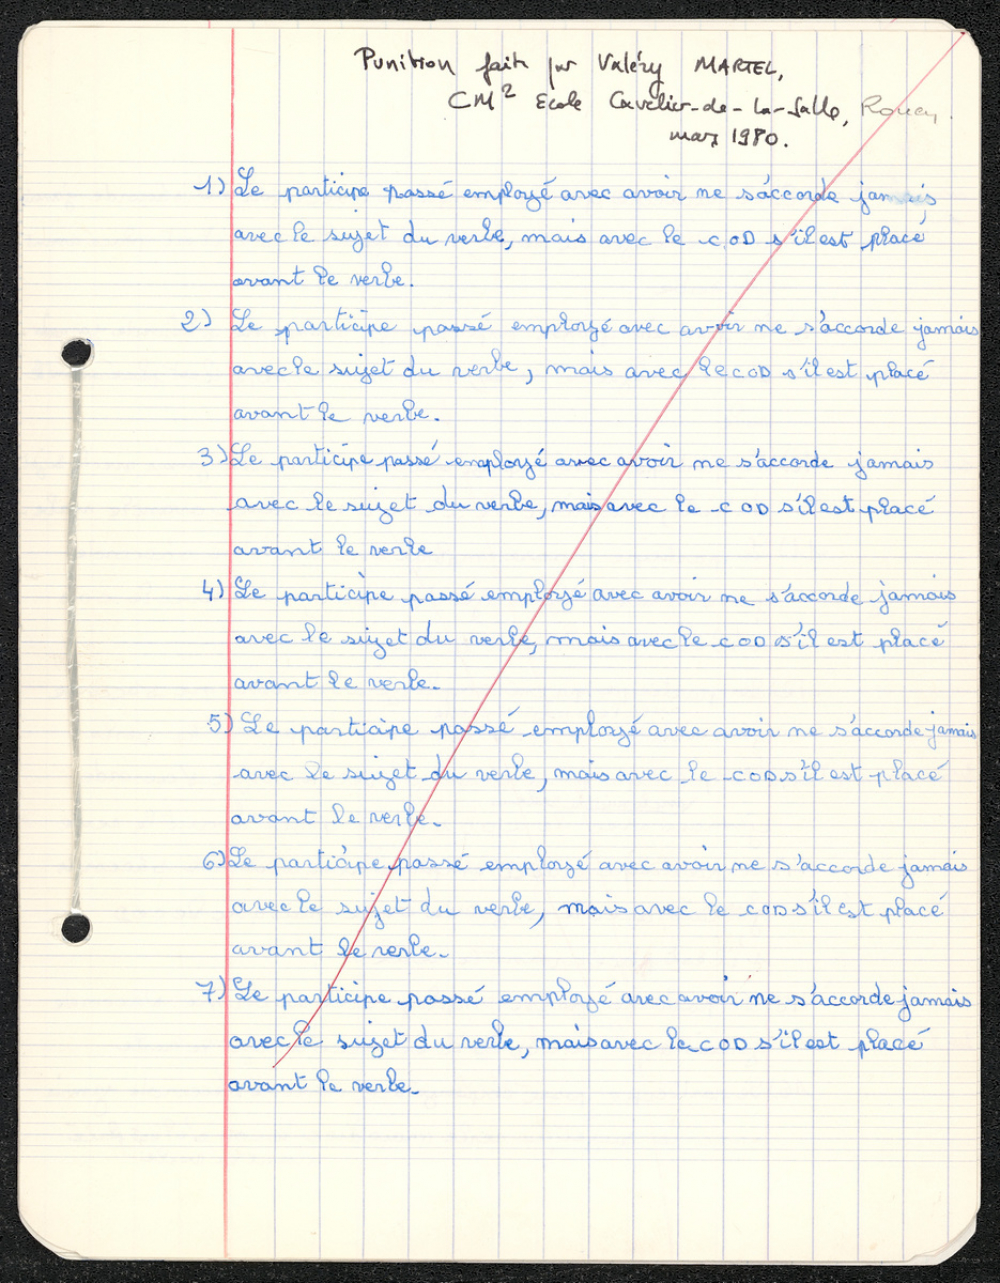 Punition faite par Valéry MARTEL,
CM2 Ecole Cavelier-de-la-Salle, Rouen.
mars 1980.
1) Le participe passé employé avec avoir ne s'accorde jamais
avec le sujet du verbe, mais avec le COD s'il est placé
avant le verbe.
2) Le participe passé employé avec avoir ne s'accorde jamais
avec le sujet du verbe, mais avec le COD s'il est placé
avant le verbe.
3) Le participe passé employé avec avoir ne s'accorde jamais
avec le sujet du verbe, mais avec le COD s'il est placé
avant le verbe
4) Le participe passé employé avec avoir ne s'accorde jamais
avec le sujet du verbe, mais avec le COD s'il est placé
avant le verbe.
5) Le participe passé employé avec avoir ne s'accorde jamais
avec le sujet du verbe, mais avec le COD s'il est placé
avant le verbe.
6) Le participe passé employé avec avoir ne s'accorde jamais
avec le sujet du verbe, mais avec le COD s'il est placé
avant le verbe.
7) Le participe passé employé avec avoir ne s'accorde jamais
avec le sujet du verbe, mais avec le COD s'il est placé
avant le verbe.